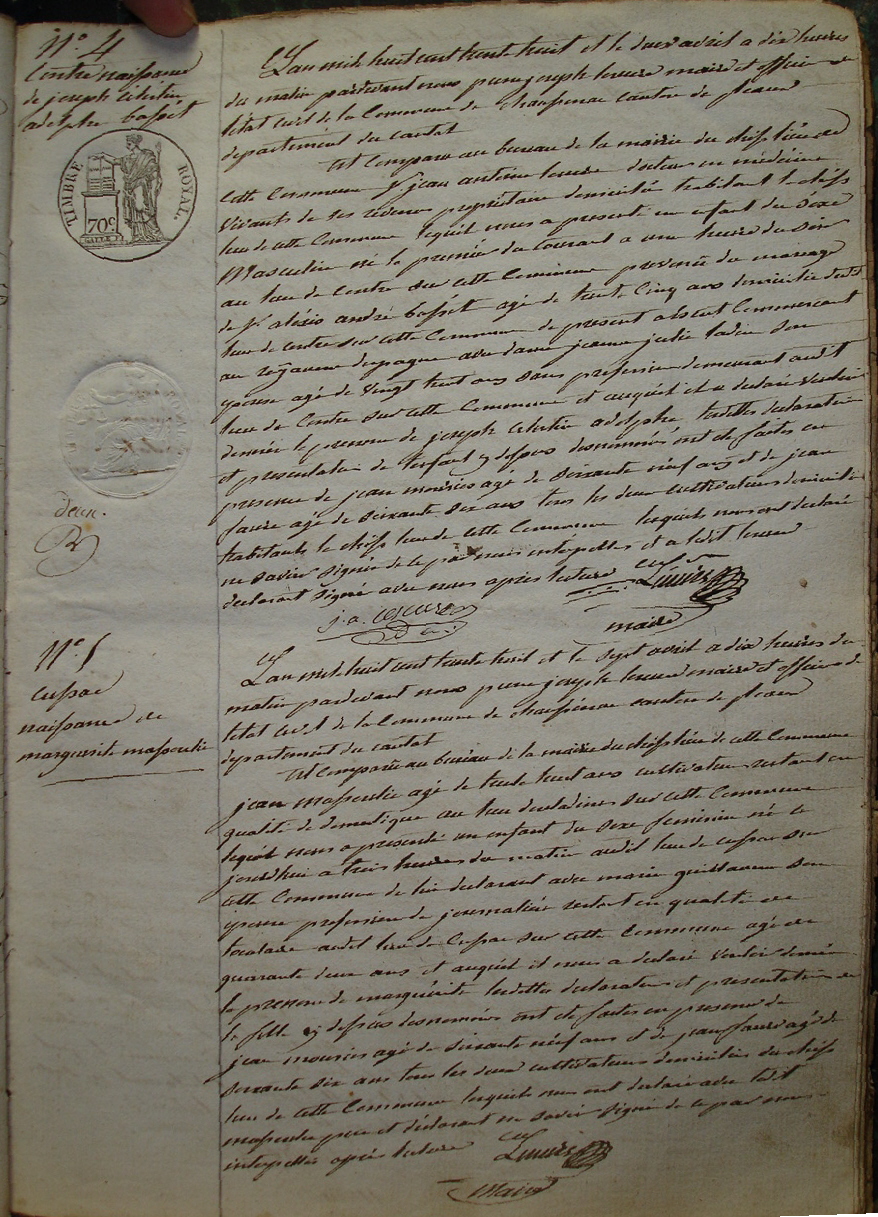 N.° 4
Contre naissance
de joseph Célestin
adolphe basset
TIMBRE ROYAL.
70 c.
deux.
L'an mil huit cent trente huit et le deux avril a dix heures
du matin pardevant nous pierre joseph lescure maire et officier de
l'état civil de la Commune de chaussenac canton de pleaux
departement du cantal
est Comparu au bureau de la mairie du cheflieu de
cette Commune Sr jean antoine lescure docteur en médécine
vivants de ses revenus propriétaire domicilié habitant le cheff
lieu de cette Commune lequel nous a presenté un enfant du Séxe
Masculin né le premier du Courant a une heure du Soir
au lieu de Contre sur cette Commune provenu du mariage
de Sr aléxis andré basset agé de trente Cinq ans domicilié audit
lieu de Contre sur cette Commune de present absent Commercant
au royaume despagne avec dame jeanne julie Son
épouse agé de vingt huit ans Sans profession demeurant audit
lieu de Contre sur cette Commune et auquel il a déclaré vouloir
donner le prenom de joseph célestin adolphe lesdittes déclaration
et presentation de l'enfant cy dessus dénommés ont été faites en
presence de jean mouriés agé de Soixante neuf ans et de jean
faure agé de Soixante Six ans tous les deux cultivateurs domiciliés
habitants le cheff lieu de cette Commune lesquels nous ont déclaré
ne Savoir Signer de ce par nous interpellés et a ledit lescure
declarant Signé avec nous après lecture
j. a. Lescure Lescure
maire
N.° 5
cussac
naissance de
marguerite
L'an mil huit cent trente huit et le Sept avril a dix heures du
matin pardevant nous pierre joseph lescure maire et officier de
l'état civil de la Commune de chaussenac canton de pleaux
departement du cantal
est Comparu au bureau de la mairie du cheflieu de cette Commune
jean agé de trente huit ans cultivateur restant en
qualité de domestique au lieu sur cette Commune
lequel nous a presenté un enfant du Sexe feminin né ce
jourdhui a trois heures du matin audit lieu de cussac Sur
cette Commune de lui declarant avec marie Son
épouse profession de journalière restant en qualité de
locataire audit lieu de Cussac Sur cette Commune agé de
quarante deux ans et auquel il nous a déclaré vouloir donner
le prenom de marguerite lesdittes declaration et presentation de
la fille cy dessus dénommés ont été faites en presence de
jean mouriés agé de Soixante neuf ans et de jean faure agé de
Soixante Six ans tous les deux cultivateurs domiciliés du cheff
lieu de cette Commune lesquels nous ont declaré avec ledit
pere et déclarant ne Savoir Signer de ce par nous
interpellés après lecture Lescure
Maire